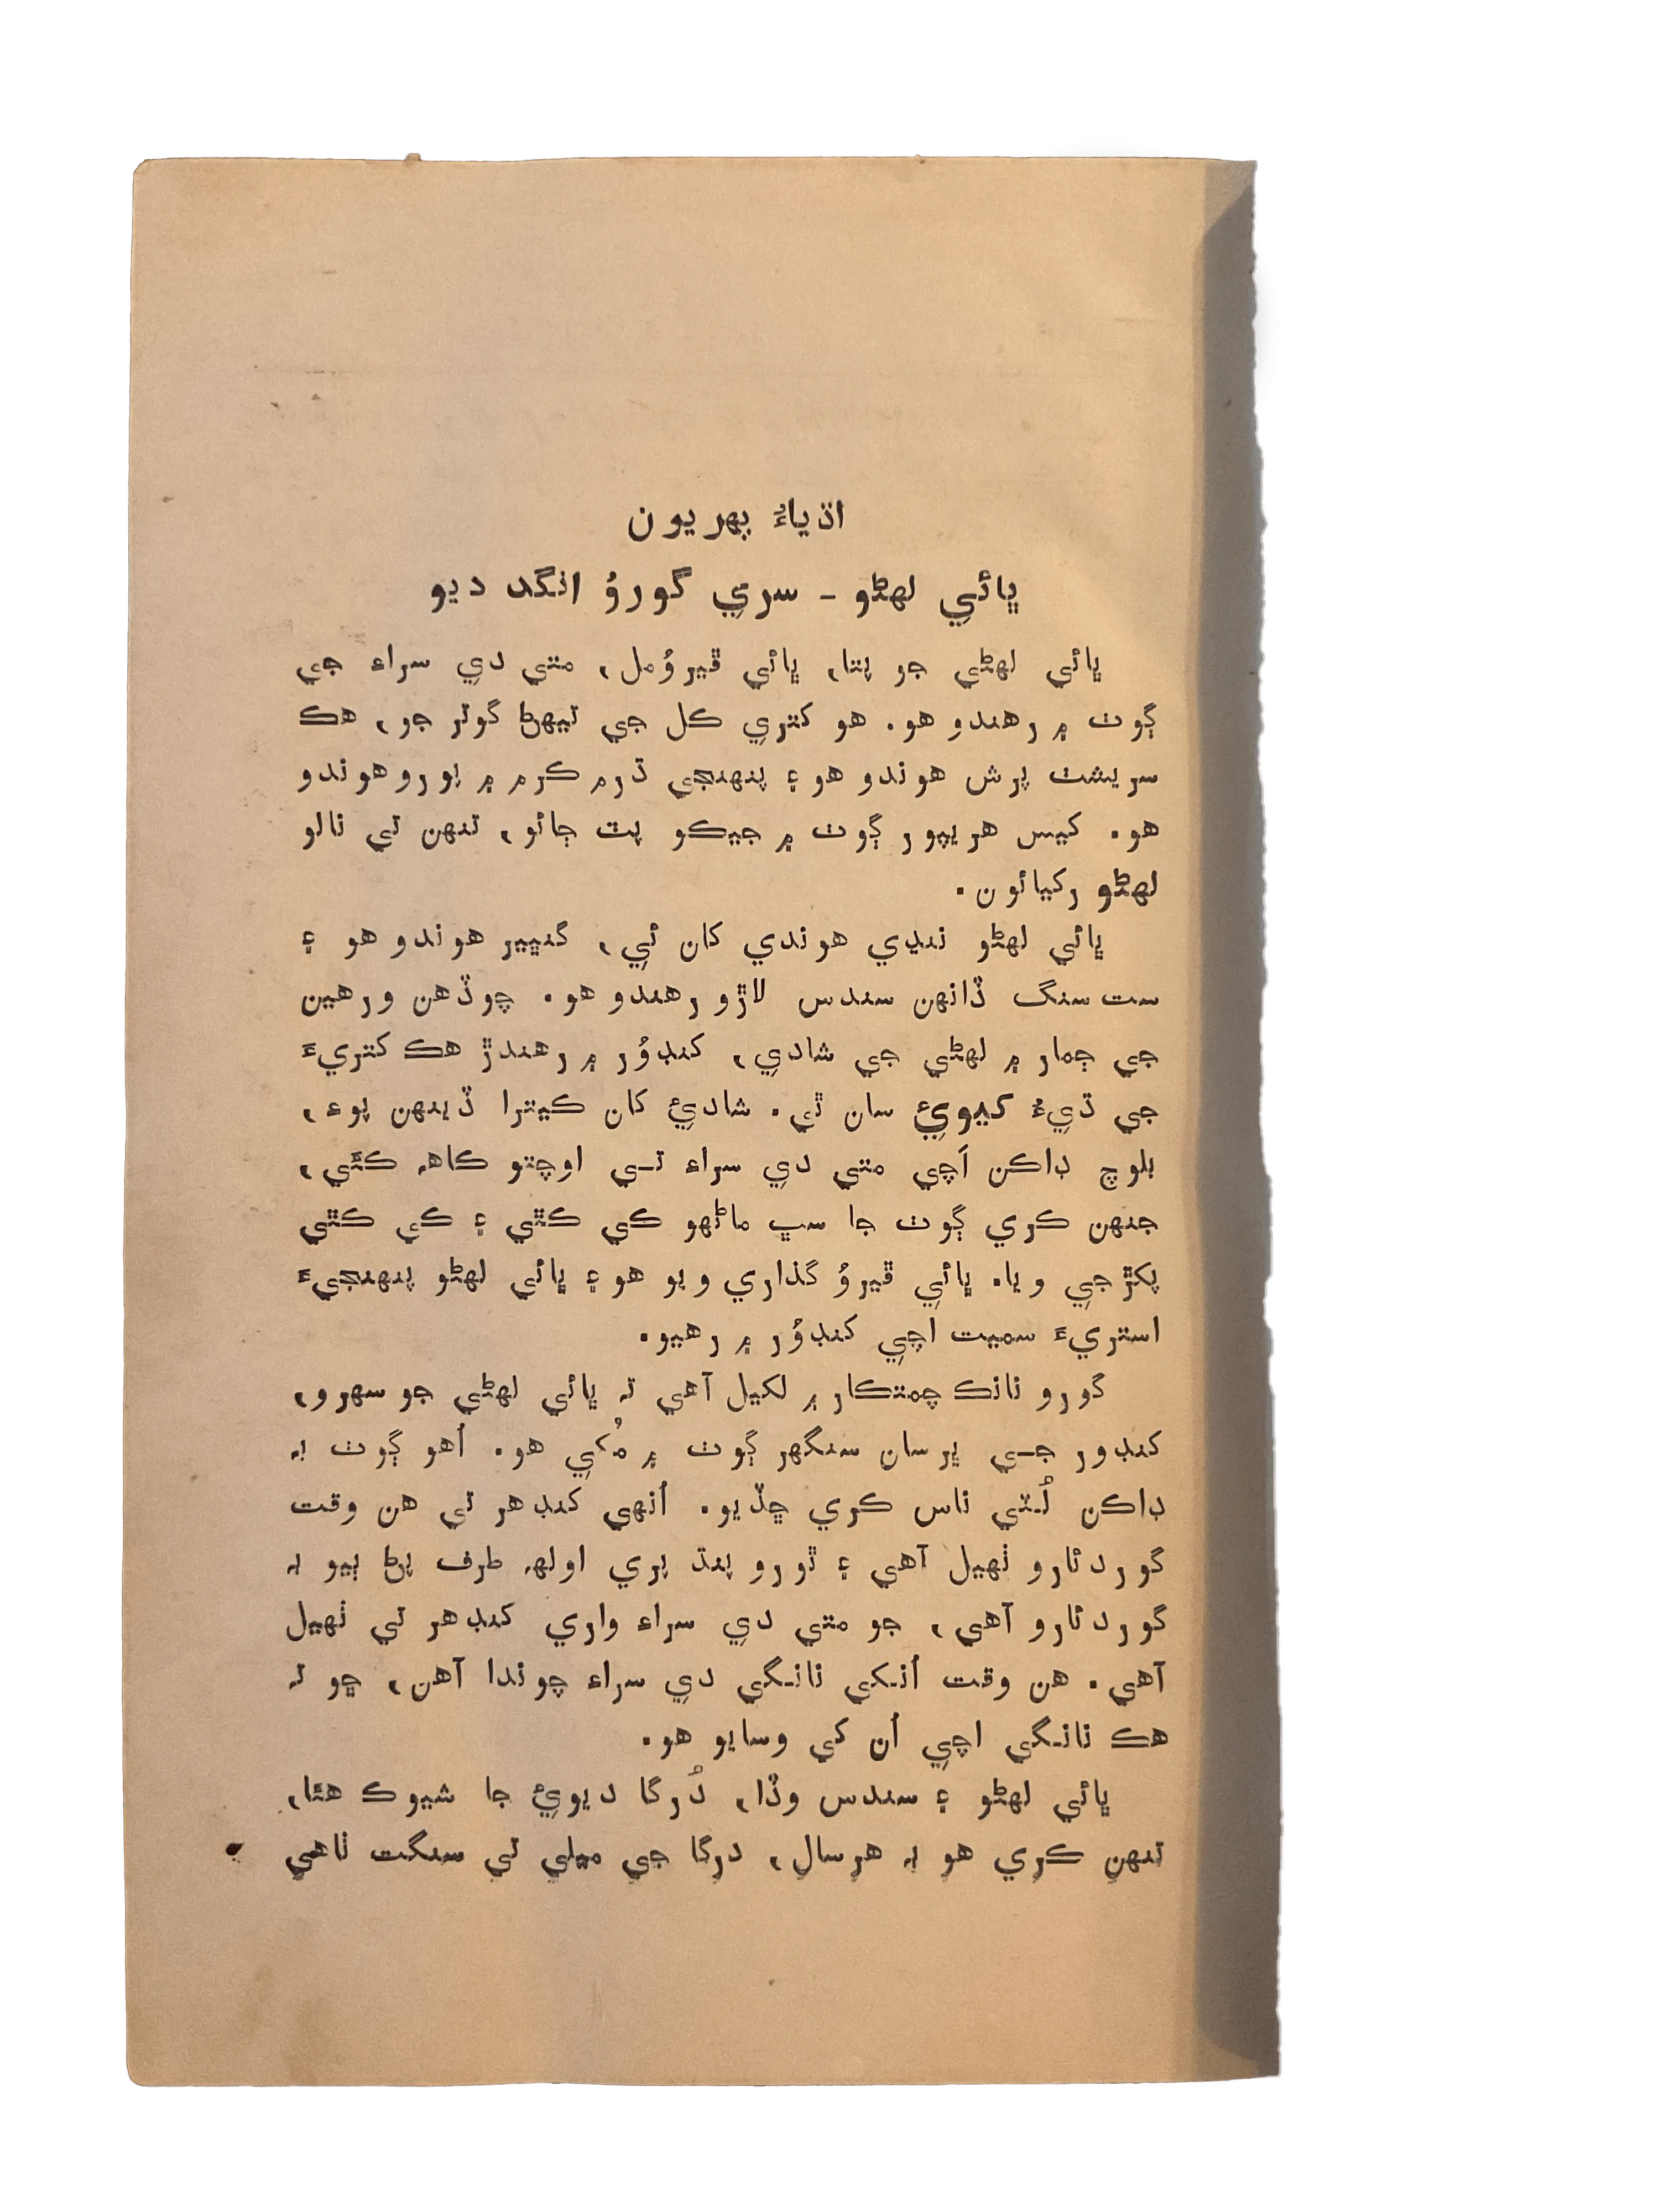 اڌياءُ پهريون
ڀائي لهڻو - سري گورُو انگد ديو
ڀائي لهڻي جو پتا، ڀائي ڦيرُومل، متي دي سراءِ جي
ڳوٺ ۾ رهندو هو. هو کتري ڪل جي تيهڻ گوتر جو، هڪ
سريشٽ پرش هوندو هو ۽ پنهنجي ڌرم ڪرم ۾ پورو هوندو
هو. کيس هريپور ڳوٺ ۾ جيڪو پٽ ڄائو، تنهن تي نالو
لهڻو رکيائون.
ڀائي لهڻو ننڍي هوندي کان ئي، گنڀير هوندو هو ۽
ست سنگ ڏانهن سندس لاڙو رهندو هو. چوڏهن ورهين
جي ڄمار ۾ لهڻي جي شادي، کنڊُور ۾ رهندڙ هڪ کتريءَ
جي ڌيءُ کيويءَ سان ٿي. شاديءَ کان ڪيترا ڏينهن پوءِ،
بلوچ ڊاڪن اَچي متي دي سراءِ تي اوچتو ڪاهه ڪئي،
جنهن ڪري ڳوٺ جا سڀ ماڻهو ڪي ڪٿي ۽ ڪي ڪٿي
پکڙجي ويا. ڀائي ڦيرُو گذاري ويو هو ۽ ڀائي لهڻو پنهنجيءَ
استريءَ سميت اچي کنڊُور ۾ رهيو.
گورو نانڪ چمتڪار ۾ لکيل آهي ته ڀائي لهڻي جو سهرو،
کنڊور جي ڀرسان سنگهر ڳوٺ ۾ مُکي هو. اُهو ڳوٺ به
ڊاڪن لُٽي ناس ڪري ڇڏيو. اُنهي کنڊهر تي هن وقت
گوردئارو ٺهيل آهي ۽ ٿورو پنڌ پري اولهه طرف پڻ ٻيو به
گوردئارو آهي، جو متي دي سراءِ واري کنڊهر تي ٺهيل
آهي. هن وقت اُنکي نانگي دي سراءِ چوندا آهن، ڇو ته
هڪ نانگي اچي اُن کي وسايو هو.
ڀائي لهڻو ۽ سندس وڏا، دُرگا ديويءَ جا شيوڪ هئا،
تنهن ڪري هو به هرسال، درگا جي ميلي تي سنگت ٺاهي